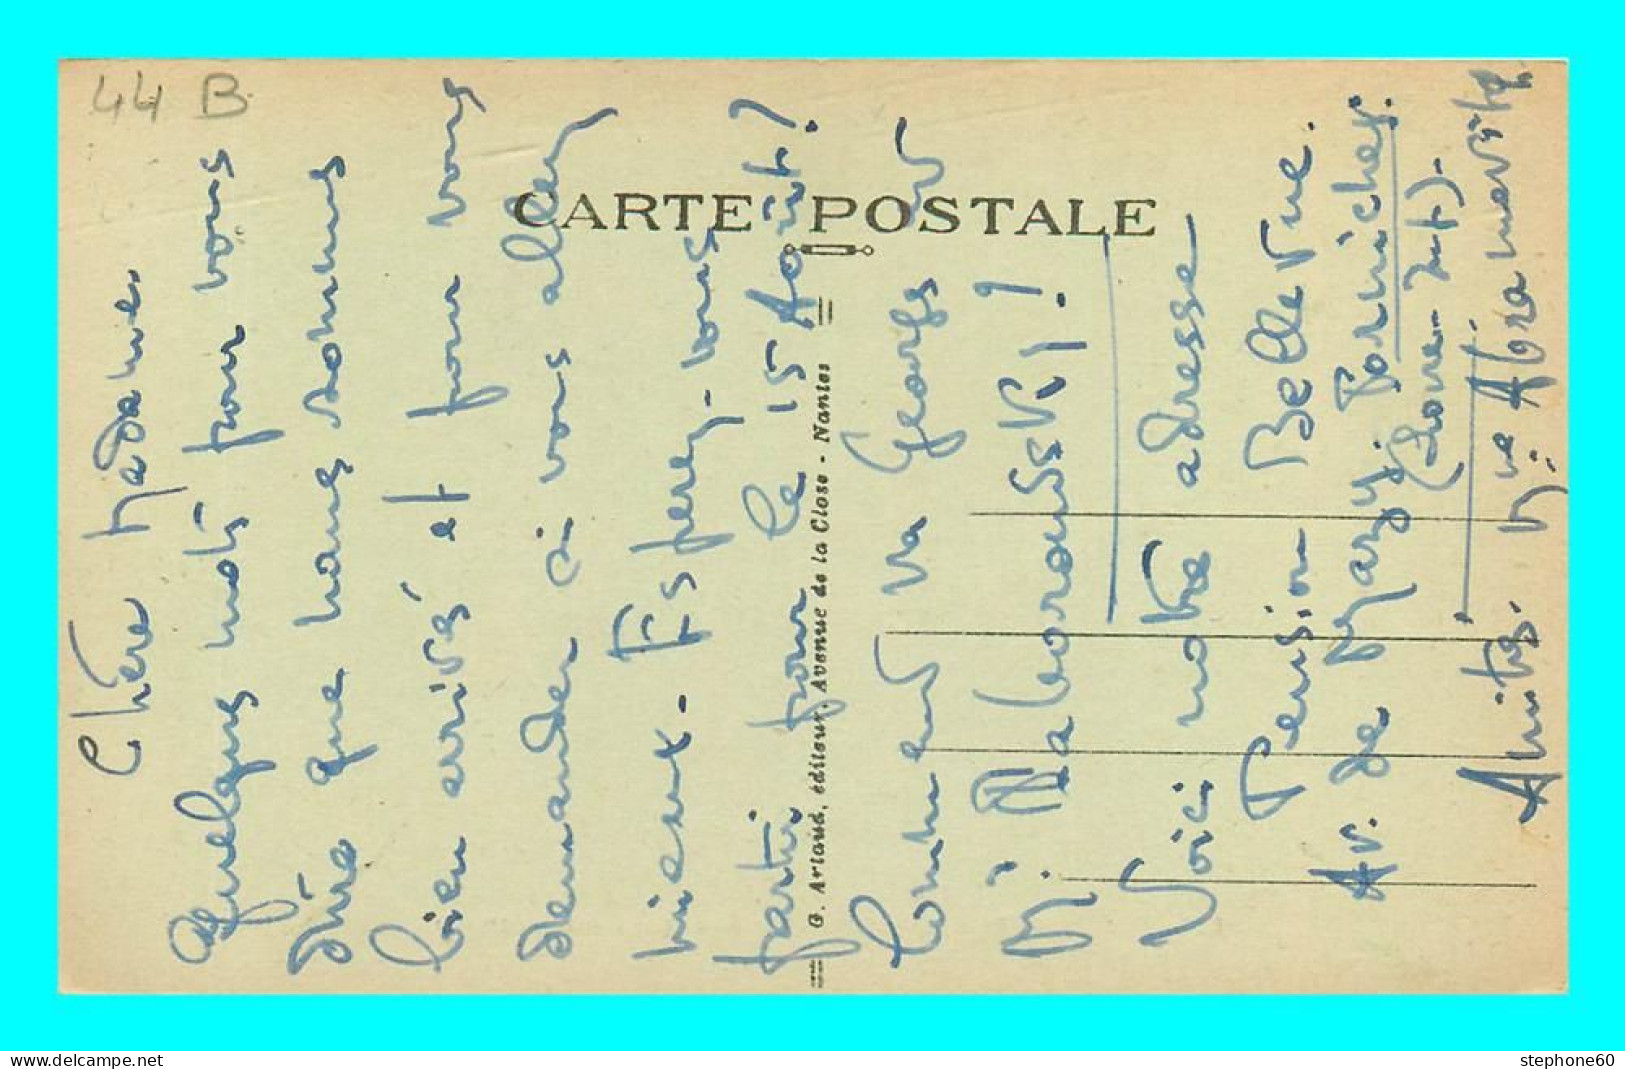 44 B
CARTE POSTALE
G. Artaud, éditeur, Avenue de la Close - Nantes
Chère Madame,
Quelques mots pour vous
dire que nous sommes
bien arrivés et pour vous
demander si vous allez
mieux. Espérez-vous
partir pour le 15 Août?
Comment va Georges et
M. NaborowsKi!
Voici notre adresse
Pension Bellevue.
Av. de Mazy. Pornichet.
Amitiés. Mme
stephone60